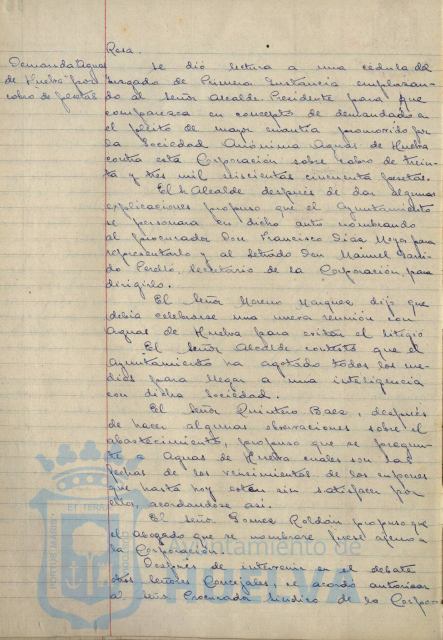 Rosa.
Demanda Aguas
de Huelva por
cobro de pesetas
Se dió lectura a una cédula del
Juzgado de Primera Instancia emplazan-
do al Señor Alcalde Presidente para que
comparezca en concepto de demandado en
el pleito de mayor cuantía promovido por
la Sociedad Anónima Aguas de Huelva
contra esta Corporación sobre cobro de trein-
ta y tres mil seiscientas cincuenta pesetas.
El Sr. Alcalde después de dar algunas
explicaciones propuso que el Ayuntamiento
se personara en dicho auto nombrando
al procurador Don Francisco Díaz Moya para
representarlo y al Letrado Don Manuel
Cordto, Secretario de la Corporación, para
dirigirlo.
El Señor Moreno Marquez dijo que
debia celebrarse una nueva reunión con
Aguas de Huelva para evitar el litigio
El Señor Alcalde contestó que el
Ayuntamiento ha agotado todos los me-
dios para llegar a una inteligencia
con dicha Sociedad.
El Señor Quintero Baez, después
de hacer algunas observaciones sobre el
abastecimiento, propuso que se pregun-
te a Aguas de Huelva cuales son las
fechas de los vencimientos de los cupones
que hasta hoy estén sin satisfacer por
ello, acordandose así.
El Señor Gomez Roldán propuso que
el abogado que se nombrare fuese ajeno a
la Corporación
Después de intervenir en el debate
otros Señores Concejales, se acordó autorizar
al Señor Procurador Síndico de la Corpo-
Ayuntamiento de
HUELVA